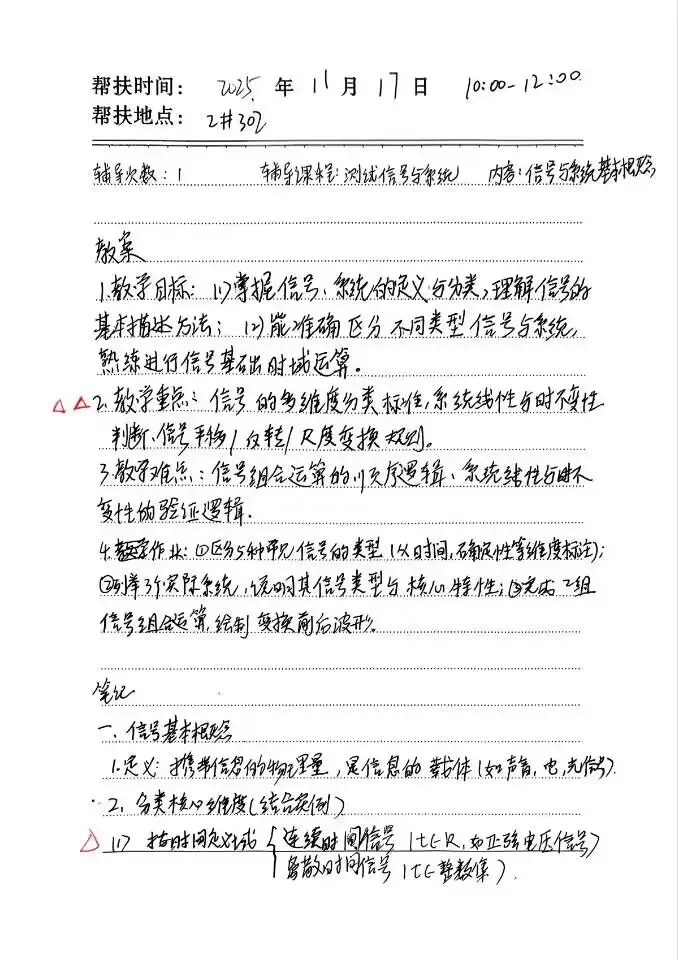 帮扶时间： 2025 年 11 月 17 日 10:00-12:00
帮扶地点： 2#302
辅导次数：1 辅导课程：测试信号与系统 内容：信号与系统基本概念
教案
1.教学目标：(1)掌握信号、系统的定义与分类，理解信号的
基本描述方法；(2)能准确区分不同类型信号与系统，
熟练进行信号基础时域运算。
2.教学重点：信号的多维度分类标准，系统线性与时不变性
判断、信号平移/反转/尺度变换规则。
3.教学难点：信号组合运算的顺序逻辑、系统线性与时不
变性的验证逻辑.
4.教学作业：①区分5种常见信号的类型(以时间,确定性等维度标注);
②列举3个实际系统，说明其信号类型与核心特性；③完成2组
信号组合运算,绘制变换前后波形。
笔记
一、信号基本概念
1.定义：携带信息的物理量，是信息的载体(如声音,电,光信号).
2、分类核心维度(结合实例)
(1) 按时间定义域 { 连续时间信号 (t∈R,如正弦电压信号)
离散时间信号 (t∈整数集).